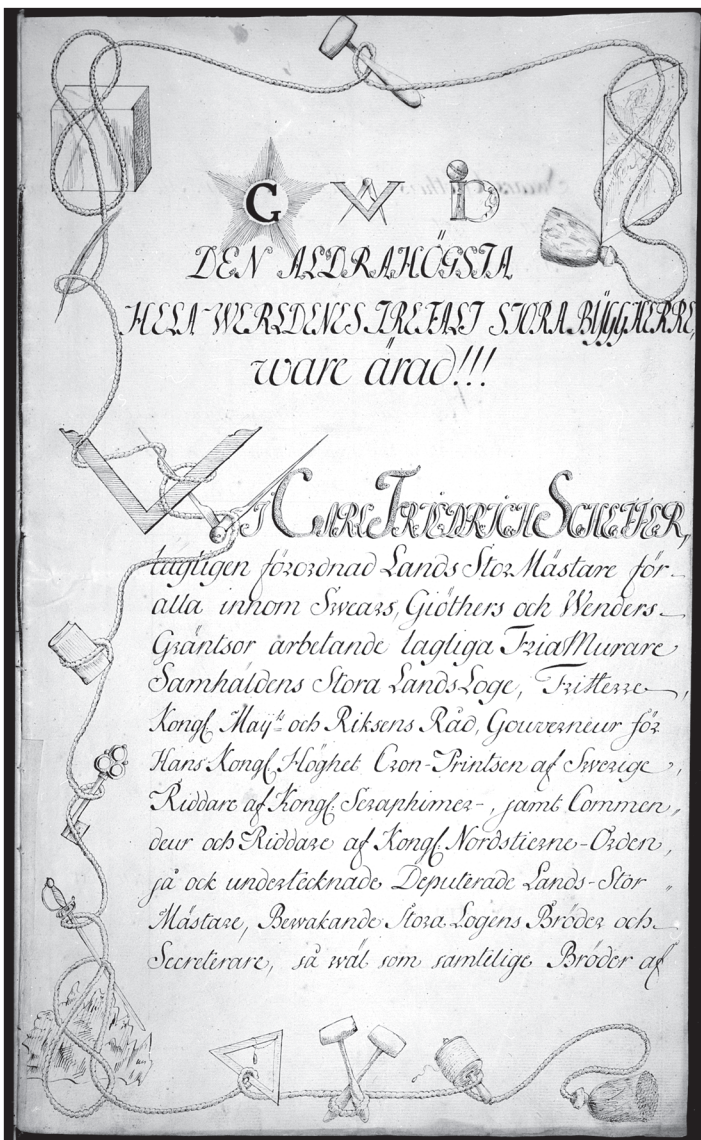 G W D
DEN ALDRAHÖGSTA
HELA WERLDENES TREFALT STORA BŸGGHERRE,
ware ärad!!!
Wi CARL FRIEDRICH SCHEFFER,
lagligen förordnad Lands Stor Mästare för
alla innom Swears, Giöthers och Wenders
Gräntsor arbetande lagliga Fria Murare
Samhäldens Stora Lands Loge, FriHerre,
Kongl. Maÿts och Riksens Råd, Gouverneur för
Hans Kongl. Höghet Cron-Printsen af Swerige,
Riddare af Kongl. Seraphimer-, samt Commen„
deur och Riddare af Kongl. Nordstierne-Orden,
så ock undertecknade Deputerade Lands-Stor„
Mästare, Bewakande Stora Logens Bröder och
Secreterare, så wäl som samtelige Bröder af